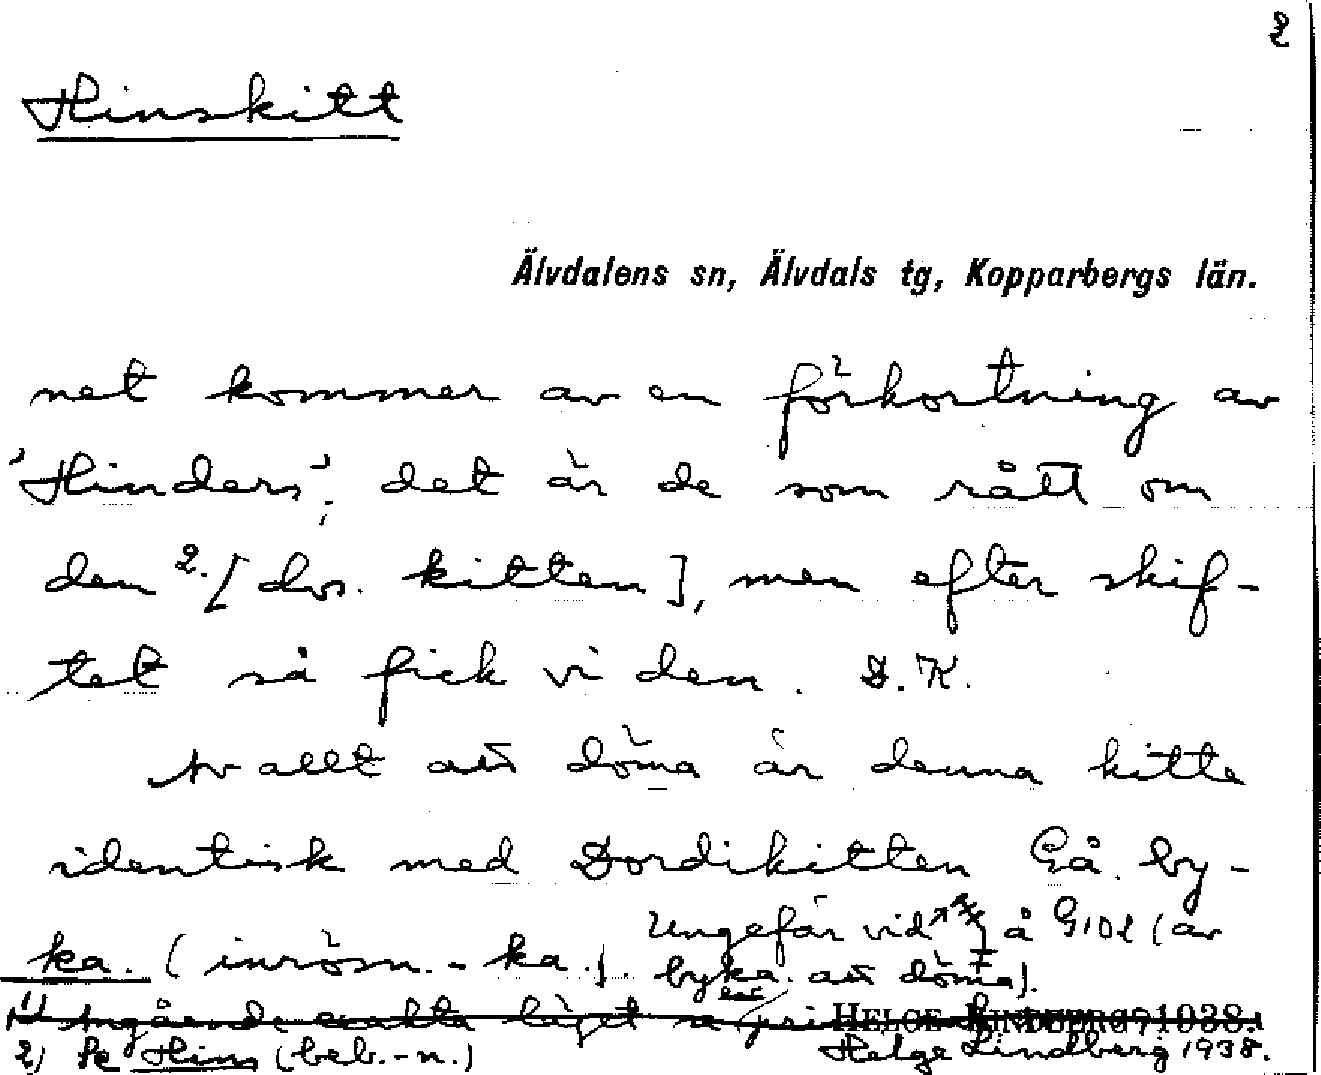 2
Hinskitt
Älvdalens sn, Älvdals tg, Kopparbergs län.
net kommer av en förkortning av
'Hinders'; det är de som rått om
den 2. [dvs. kitten], men efter skif-
tet så fick vi den. D.K.
Av allt att döma är denna kitte
identisk med Dordikitten Gå. by-
ka. (inrösn.-ka.). Ungefär vid å G102 (av
byka. att döma).
1) Angående exakta läget se HELGE LINDBERG, 1938.
2) Se Hins (beb.-n.) Helge Lindberg 1938.